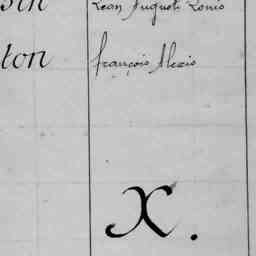 sin Léon Auguste Louis
ton François Alexis
X.